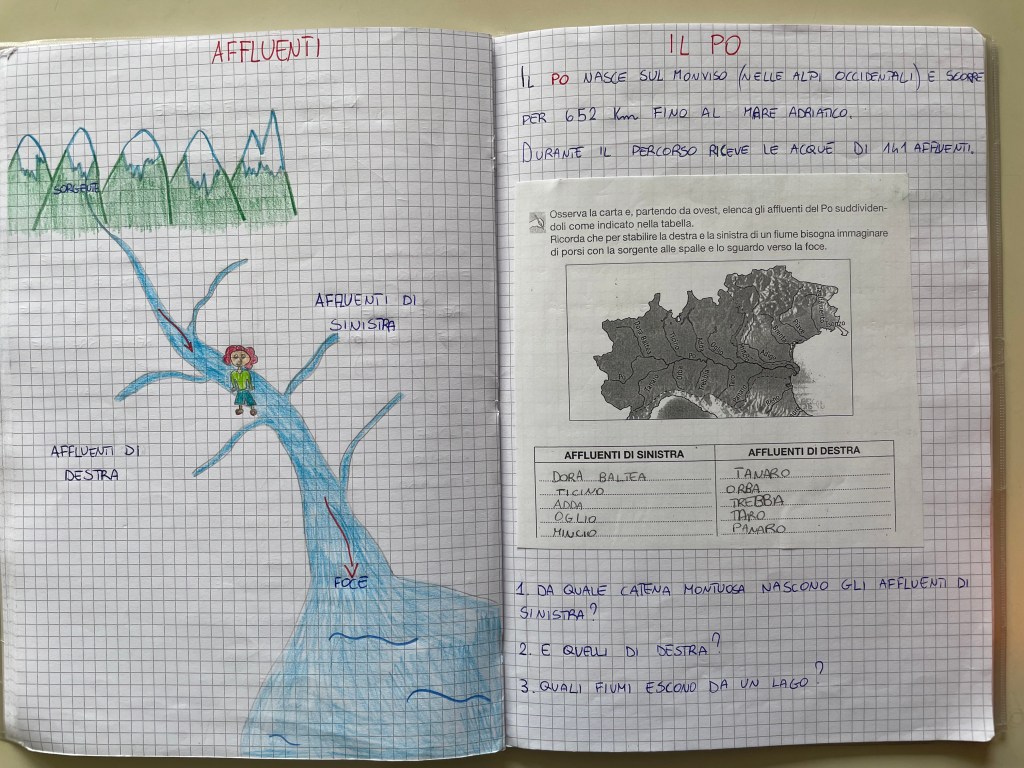 AFFLUENTI
SORGENTE
AFFLUENTI DI
SINISTRA
AFFLUENTI DI
DESTRA
FOCE
IL PO
IL PO NASCE SUL MONVISO (NELLE ALPI OCCIDENTALI) E SCORRE
PER 652 Km FINO AL MARE ADRIATICO.
DURANTE IL PERCORSO RICEVE LE ACQUE DI 141 AFFLUENTI.
Osserva la carta e, partendo da ovest, elenca gli affluenti del Po suddividen-
doli come indicato nella tabella.
Ricorda che per stabilire la destra e la sinistra di un fiume bisogna immaginare
di porsi con la sorgente alle spalle e lo sguardo verso la foce.
AFFLUENTI DI SINISTRA
DORA BALTEA
TICINO
ADDA
OGLIO
MINCIO
AFFLUENTI DI DESTRA
TANARO
ORBA
TREBBIA
TARO
PANARO
1. DA QUALE CATENA MONTUOSA NASCONO GLI AFFLUENTI DI
SINISTRA?
2. E QUELLI DI DESTRA?
3. QUALI FIUMI ESCONO DA UN LAGO?